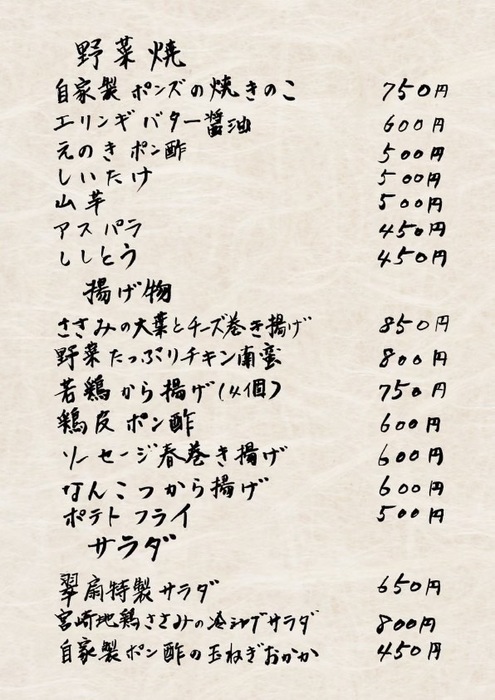 野菜焼
自家製 ポンズの焼きのこ 750円
エリンギバター醤油 600円
えのき ポン酢 500円
しいたけ 500円
山芋 500円
アスパラ 450円
ししとう 450円
揚げ物
ささみの大葉とチーズ巻き揚げ 850円
野菜たっぷりチキン南蛮 800円
若鶏から揚げ(4個) 750円
鶏皮 ポン酢 600円
ソーセージ春巻き揚げ 600円
なんこつから揚げ 600円
ポテトフライ 500円
サラダ
翠扇特製サラダ 650円
宮崎地鶏ささみの冷しゃぶサラダ 800円
自家製ポン酢の玉ねぎおかか 450円